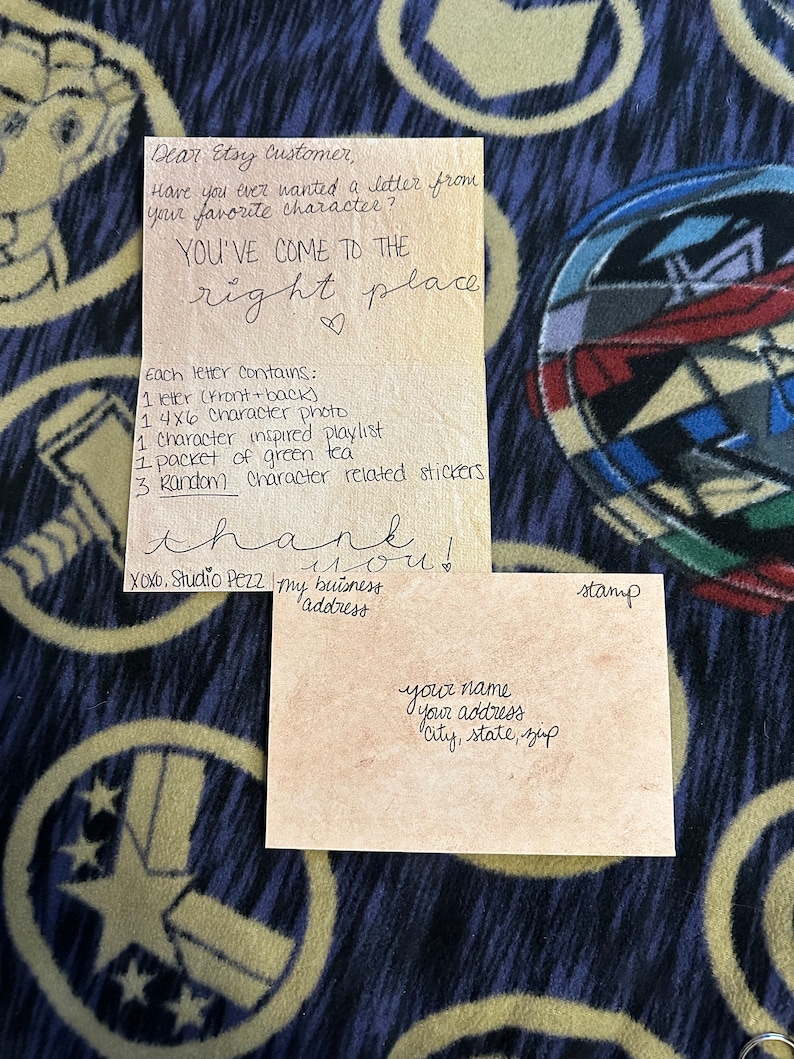 Dear Etsy Customer,
Have you ever wanted a letter from
your favorite character?
YOU'VE COME TO THE
right place
Each letter contains:
1 letter (front+back)
1 4x6 character photo
1 character inspired playlist
1 packet of green tea
3 Random character related stickers
thank
you!
xoxo, Studio Pezz
my buisness
address
stamp
your name
your address
city, state, zip